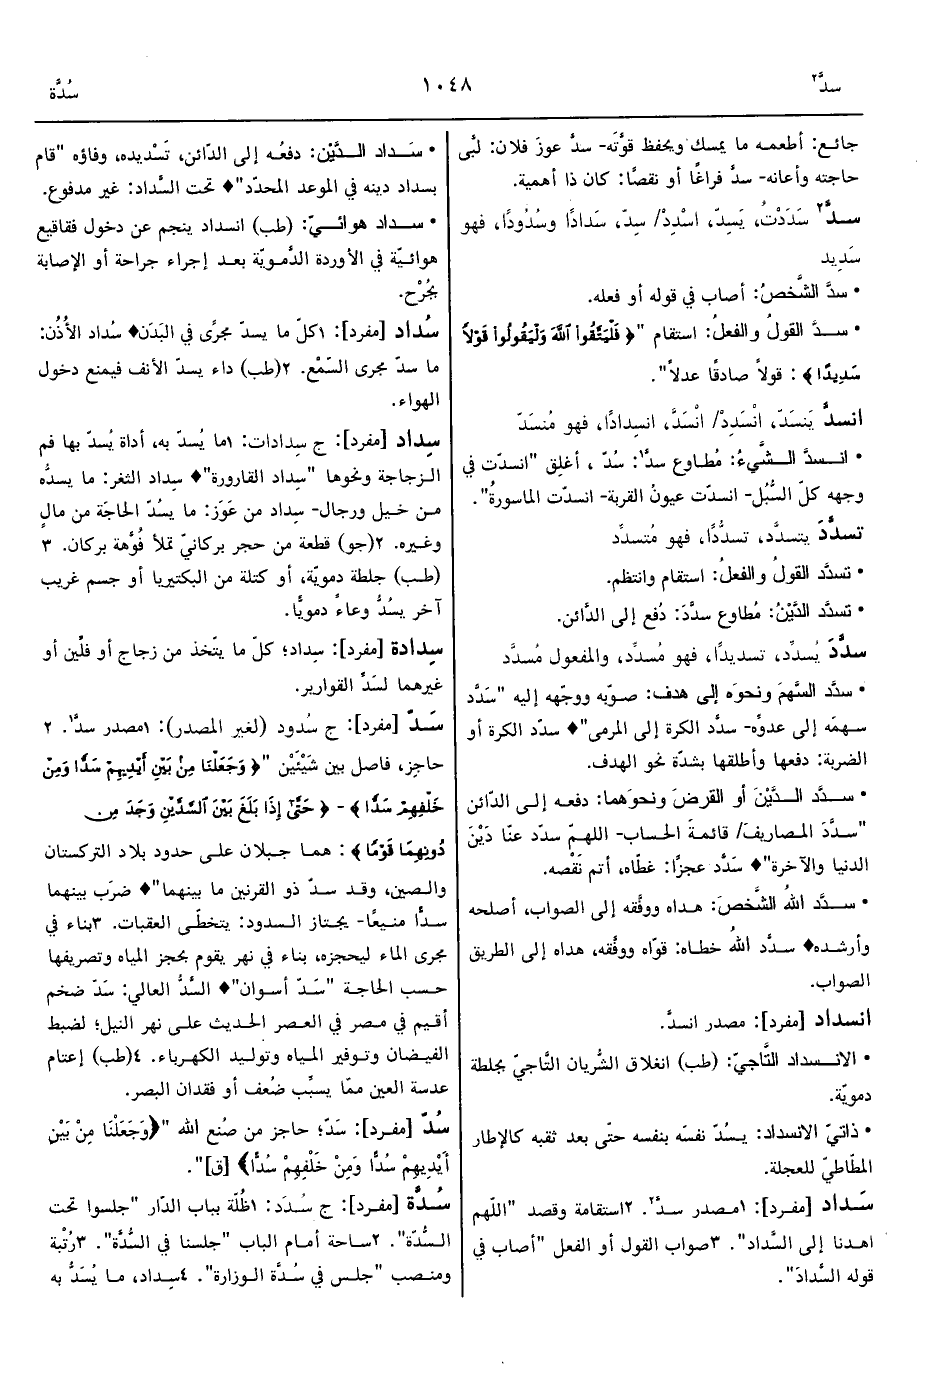 سدَّ٢
١٠٤٨
سُدَّة
جائع: أطعمه ما يمسك ويحفظ قوَّتَه- سدَّ عوزَ فلان: لبَّى
حاجته وأعانه- سدَّ فراغًا أو نقصًا: كان ذا أهمية.
سدَّ٢ سَدَدْتُ، يَسِدّ، اسْدِدْ/ سِدّ، سَدادًا وسُدُودًا، فهو
سَدِيد
• سدَّ الشَّخصُ: أصاب في قوله أو فعله.
• سدَّ القولُ والفعلُ: استقام "﴿ فَلْيَتَّقُواْ اللَّهَ وَلْيَقُولُواْ قَوْلاً
سَدِيدًا ﴾ : قولاً صادقًا عدلاً".
انسدَّ يَنسَدّ، انْسَدِدْ/ انْسَدَّ، انسِدادًا، فهو مُنسَدّ
• انسدَّ الشَّيءُ: مُطاوع سدَّ١: سُدّ ، أغلِق "انسدّت في
وجهه كلّ السُّبُل- انسدّت عيونُ القربة- انسدّت الماسورةُ".
تسدَّدَ يتسدَّد، تسدُّدًا، فهو مُتسدِّد
• تسدَّد القولُ والفعلُ: استقام وانتظم.
• تسدَّد الدَّيْنُ: مُطاوع سدَّدَ: دُفع إلى الدَّائن.
سدَّدَ يُسدِّد، تسديدًا، فهو مُسدِّد، والمفعول مُسدَّد
• سدَّد السَّهمَ ونحوَه إلى هدف: صوّبه ووجّهه إليه "سَدَّد
سهمَه إلى عدوِّه- سدَّد الكرة إلى المرمى"♦ سدّد الكرة أو
الضربة: دفعها وأطلقها بشدّة نحو الهدف.
• سدَّد الدَّيْنَ أو القرضَ ونحوَهما: دفعه إلى الدّائن
"سدَّدَ المصاريفَ/ قائمةَ الحساب- اللهمّ سدّد عنّا دَيْنَ
الدنيا والآخرة"♦ سَدَّد عجزًا: غطّاه، أتم نَقْصه.
• سدَّد اللهُ الشَّخصَ: هداه ووفَّقه إلى الصواب، أصلحه
وأرشده♦ سدَّد اللهُ خطاه: قوّاه ووفَّقه، هداه إلى الطريق
الصواب.
انسداد [مفرد]: مصدر انسدَّ.
• الانسداد التَّاجيّ: (طب) انغلاق الشُّريان التَّاجيّ بجلطة
دمويّة.
• ذاتيّ الانسداد: يسُدّ نفسَه بنفسه حتَّى بعد ثقبه كالإطار
المطّاطيّ للعجلة.
سَداد [مفرد]: ١مصدر سدَّ٢. ٢استقامة وقصد "اللّهم
اهدنا إلى السَّداد". ٣صواب القول أو الفعل "أصاب في
قوله السَّدادَ".
• سَداد الدَّيْن: دفعُه إلى الدّائن، تَسْديده، وفاؤه "قام
بسداد دينه في الموعد المحدّد"♦ تحت السَّداد: غير مدفوع.
• سداد هوائيّ: (طب) انسداد ينجم عن دخول فقاقيع
هوائيّة في الأوردة الدَّمويّة بعد إجراء جراحة أو الإصابة
بجُرْح.
سُداد [مفرد]: ١كلّ ما يسدّ مجرًى في البَدَن♦ سُداد الأُذُن:
ما سدّ مجرى السَّمْع. ٢(طب) داء يسدّ الأنف فيمنع دخول
الهواء.
سِداد [مفرد]: ج سِدادات: ١ما يُسدّ به، أداة يُسدّ بها فم
الزجاجة ونحوها "سِداد القارورة"♦ سِداد الثغر: ما يسدُّه
من خيل ورجال- سِداد من عَوَز: ما يسُدّ الحاجَة من مالٍ
وغيره. ٢(جو) قطعة من حجر بركانيّ تملأ فُوَّهة بركان. ٣
(طب) جلطة دمويّة، أو كتلة من البكتيريا أو جسم غريب
آخر يسُدُّ وعاءً دمويًّا.
سِدادة [مفرد]: سِداد؛ كلّ ما يتّخذ من زجاج أو فلّين أو
غيرهما لسَدّ القوارير.
سَدّ [مفرد]: ج سُدود (لغير المصدر): ١مصدر سدَّ١. ٢
حاجز، فاصل بين شَيْئَيْن "﴿ وَجَعَلْنَا مِنْ بَيْنِ أَيْدِيهِمْ سَدًّا وَمِنْ
خَلْفِهِمْ سَدًّا ﴾ - ﴿ حَتَّى إِذَا بَلَغَ بَيْنَ السَّدَّيْنِ وَجَدَ مِن
دُونِهِمَا قَوْمًا ﴾ : هما جبلان على حدود بلاد التركستان
والصين، وقد سدّ ذو القرنين ما بينهما"♦ ضرَب بينهما
سدًّا منيعًا- يجتاز السدود: يتخطَّى العقبات. ٣بناء في
مجرى الماء ليحجزه، بناء في نهر يقوم بحجز المياه وتصريفها
حسب الحاجة "سَدّ أسوان"♦ السَّدُّ العالي: سَدّ ضخم
أقيم في مصر في العصر الحديث على نهر النيل؛ لضبط
الفيضان وتوفير المياه وتوليد الكهرباء. ٤(طب) إعتام
عدسة العين ممّا يسبِّب ضُعف أو فقدان البصر.
سُدّ [مفرد]: سَدّ؛ حاجز من صُنع الله "﴿وَجَعَلْنَا مِنْ بَيْنِ
أَيْدِيهِمْ سُدًّا وَمِنْ خَلْفِهِمْ سُدًّا﴾ [ق]".
سُدَّة [مفرد]: ج سُدَد: ١ظُلّة بباب الدَّار "جلسوا تحت
السدّة". ٢ساحة أمام الباب "جلسنا في السُّدَّة". ٣رُتْبة
ومنصب "جلس في سُدَّة الوزارة". ٤سِداد، ما يُسَدُّ به